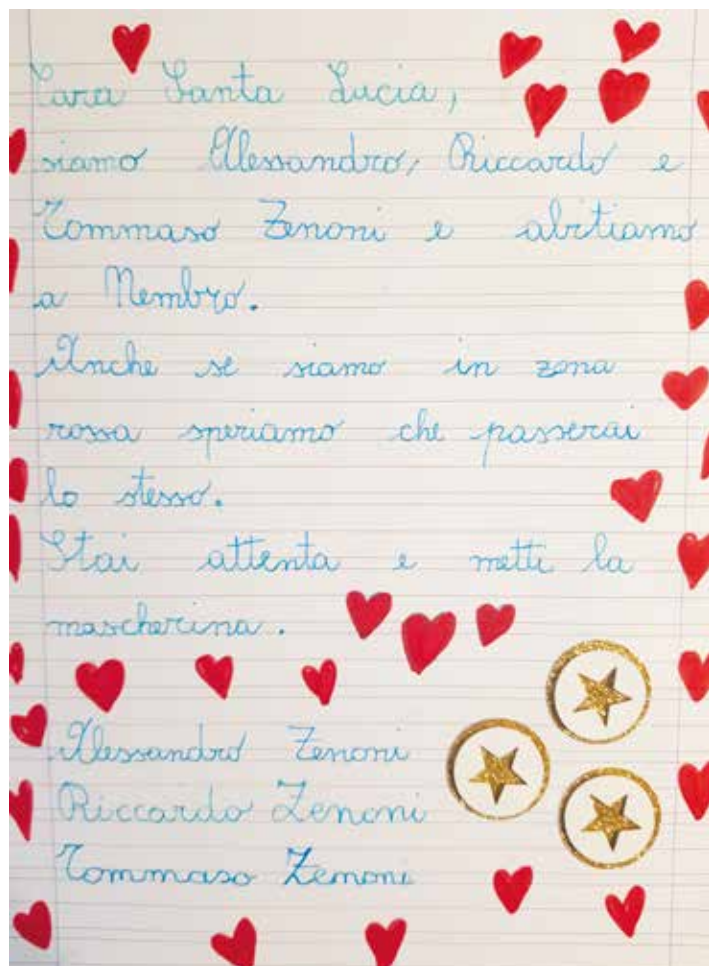 Cara Santa Lucia,
siamo Alessandro, Riccardo e
Tommaso Zenoni e abitiamo
a Nembro.
Anche se siamo in zona
rossa speriamo che passerai
lo stesso.
Stai attenta e metti la
mascherina.
Alessandro Zenoni
Riccardo Zenoni
Tommaso Zenoni